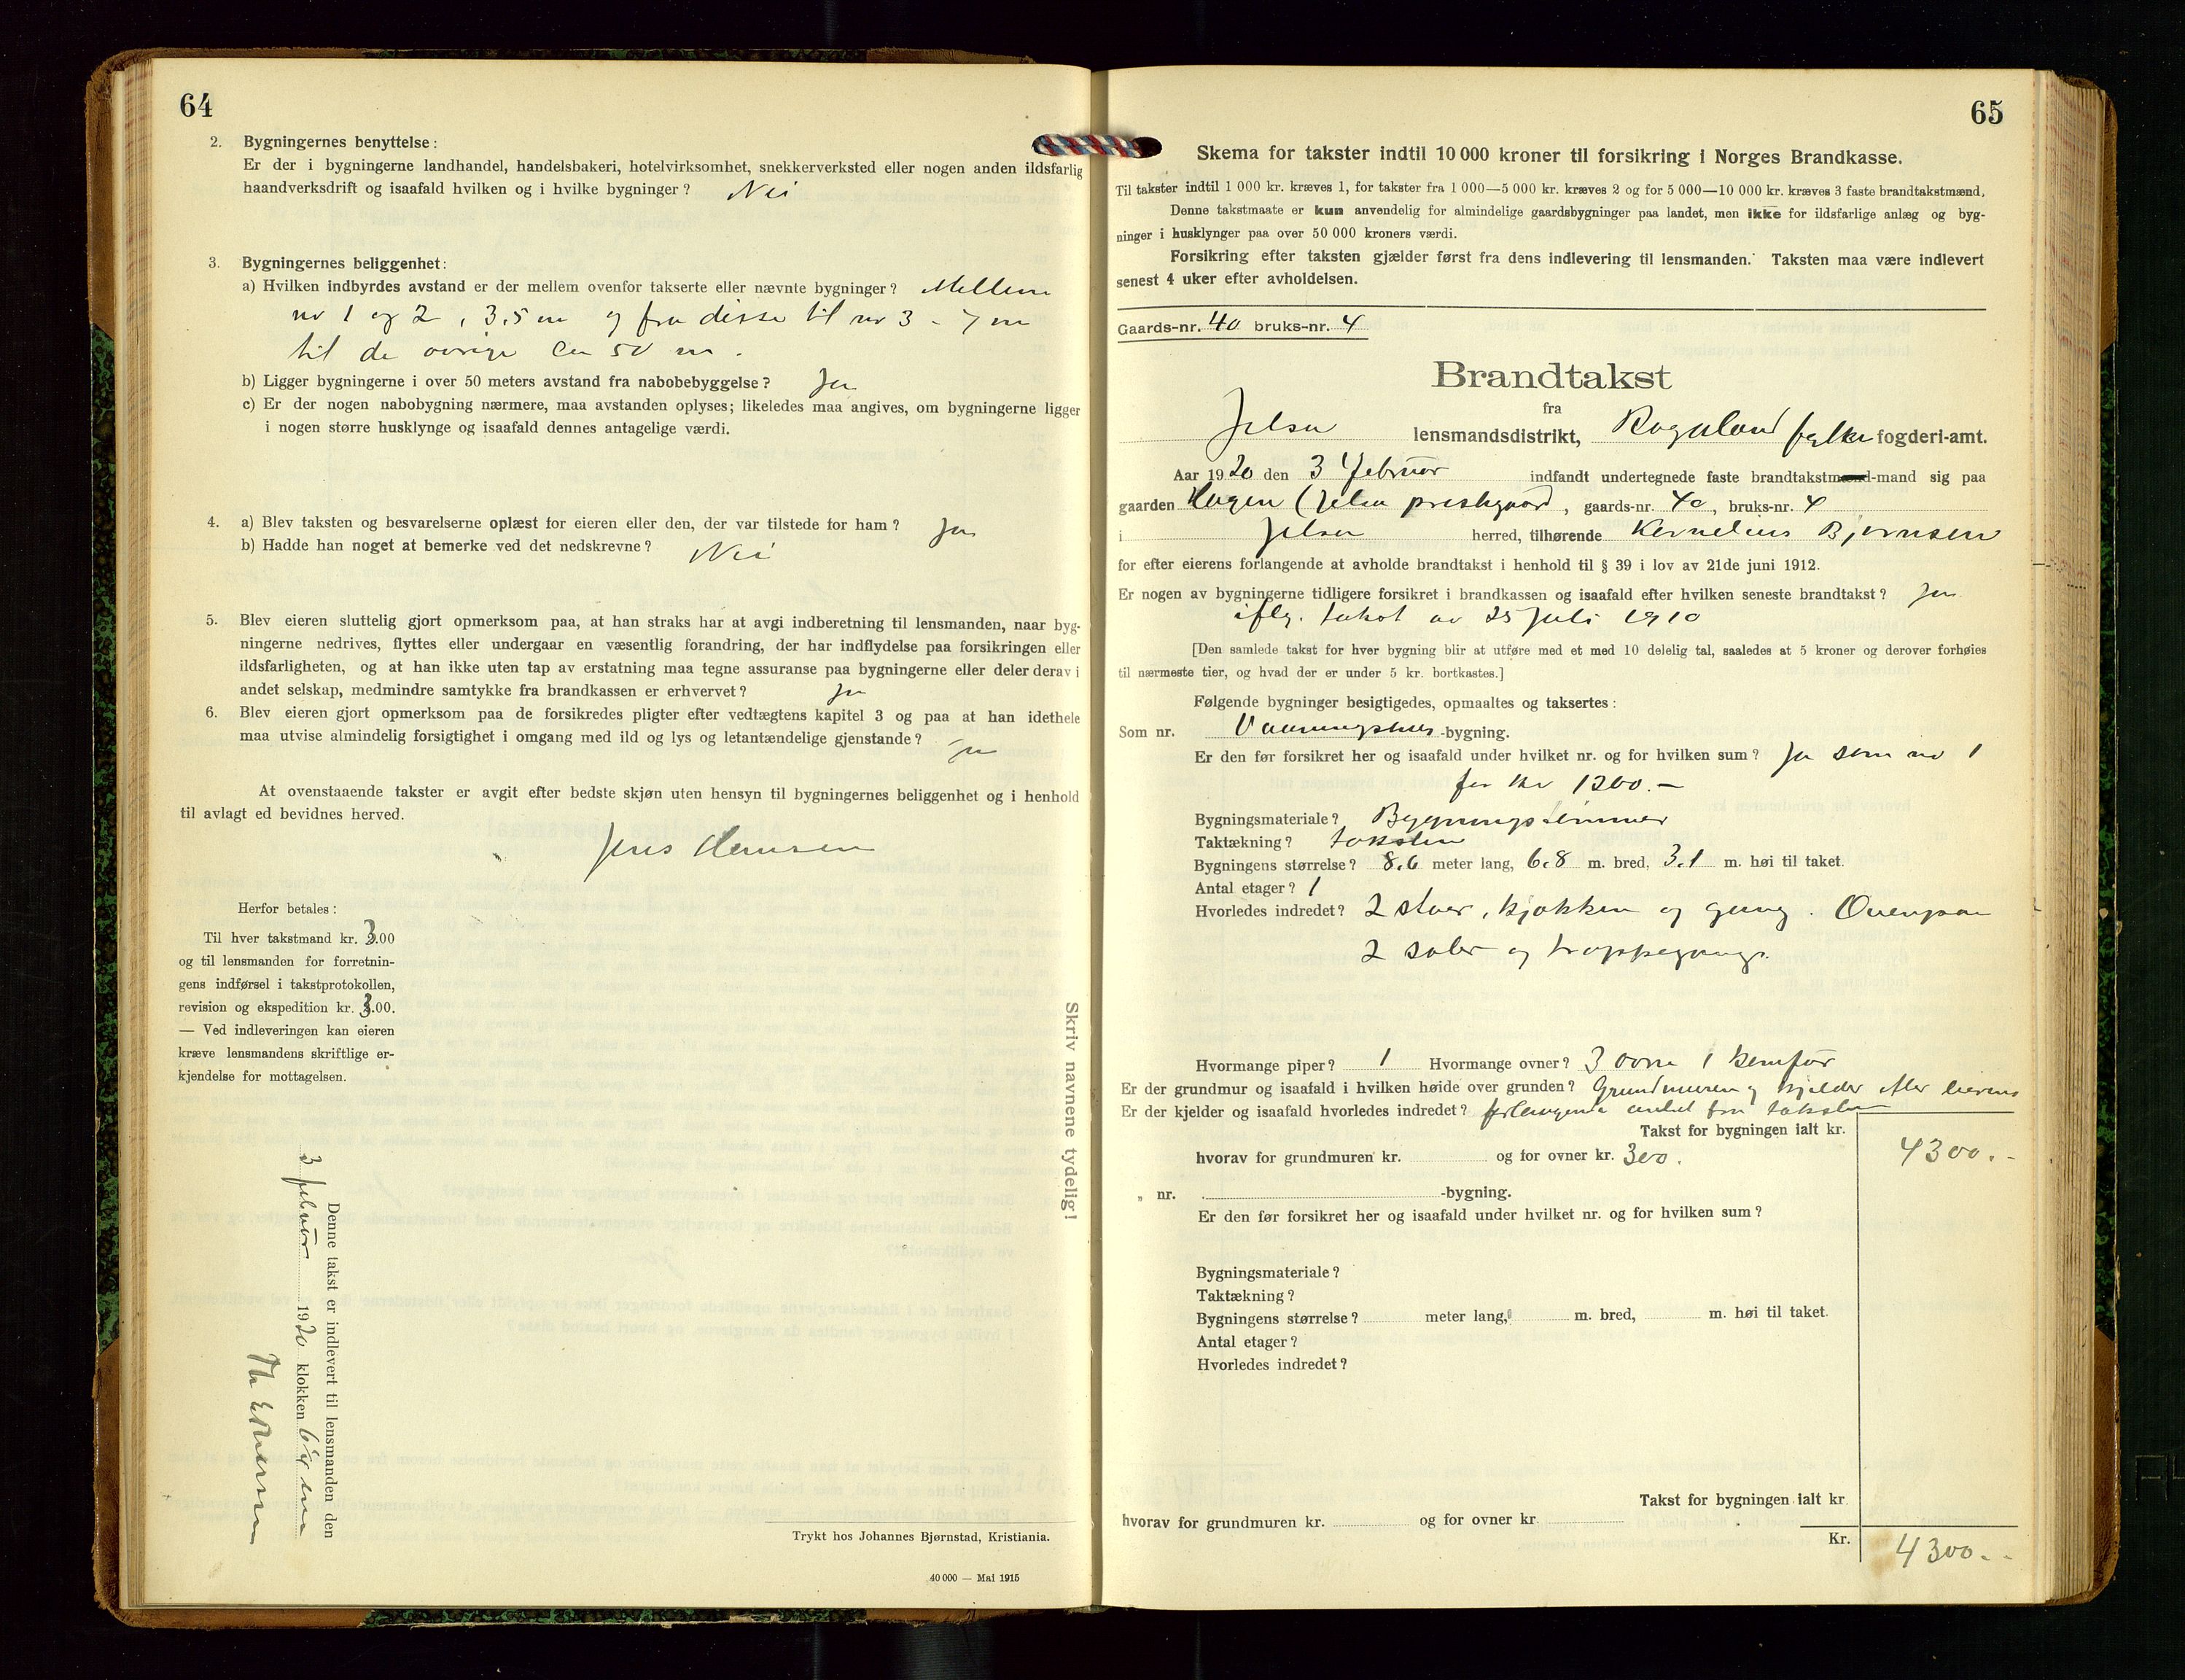 64
2. Bygningernes benyttelse:
Er der i bygningerne landhandel, handelsbakeri, hotelvirksomhet, snekkerverksted eller nogen anden ildsfarlig
haandverksdrift og isaafald hvilken og i hvilke bygninger? Nei
3. Bygningernes beliggenhet:
a) Hvilken indbyrdes avstand er der mellem ovenfor takserte eller nævnte bygninger? Mellem
nr 1 og 2, 3,5 m og fra disse til nr 3 - 7 m
til de øvrige ca 50 m.
b) Ligger bygningerne i over 50 meters avstand fra nabobebyggelse? Ja
c) Er der nogen nabobygning nærmere, maa avstanden oplyses; likeledes maa angives, om bygningerne ligger
i nogen større husklynge og isaafald dennes antagelige værdi.
4. a) Blev taksten og besvarelserne oplæst for eieren eller den, der var tilstede for ham? Ja
b) Hadde han noget at bemerke ved det nedskrevne? Nei
5. Blev eieren sluttelig gjort opmerksom paa, at han straks har at avgi indberetning til lensmanden, naar byg-
ningerne nedrives, flyttes eller undergaar en væsentlig forandring, der har indflydelse paa forsikringen eller
ildsfarligheten, og at han ikke uten tap av erstatning maa tegne assuranse paa bygningerne eller deler derav i
andet selskap, medmindre samtykke fra brandkassen er erhvervet? Ja
6. Blev eieren gjort opmerksom paa de forsikredes pligter efter vedtægtens kapitel 3 og paa at han idethele
maa utvise almindelig forsigtighet i omgang med ild og lys og letantændelige gjenstande? Ja
At ovenstaaende takster er avgit efter bedste skjøn uten hensyn til bygningernes beliggenhet og i henhold
til avlagt ed bevidnes herved.
Jens Hansen
Herfor betales:
Til hver takstmand kr. 3.00
og til lensmanden for forretnin-
gens indførsel i takstprotokollen,
revision og ekspedition kr. 3.00.
— Ved indleveringen kan eieren
kræve lensmandens skriftlige er-
kjendelse for mottagelsen.
Denne takst er indlevert til lensmanden den
3 februar 1920 klokken 6
Skriv navnene tydelig!
Trykt hos Johannes Bjørnstad, Kristiania.
40 000 — Mai 1915
65
Skema for takster indtil 10 000 kroner til forsikring i Norges Brandkasse.
Til takster indtil 1 000 kr. kræves 1, for takster fra 1 000—5 000 kr. kræves 2 og for 5 000—10 000 kr. kræves 3 faste brandtakstmænd.
Denne takstmaate er kun anvendelig for almindelige gaardsbygninger paa landet, men ikke for ildsfarlige anlæg og byg-
ninger i husklynger paa over 50 000 kroners værdi.
Forsikring efter taksten gjælder først fra dens indlevering til lensmanden. Taksten maa være indlevert
senest 4 uker efter avholdelsen.
Gaards-nr. 40 bruks-nr. 4
Brandtakst
fra
Jelsa lensmandsdistrikt, Rogaland fylke fogderi-amt.
Aar 1920 den 3 februar indfandt undertegnede faste brandtakstmænd-mand sig paa
gaarden Hagen (Jelsa prestegaard, gaards-nr. 40, bruks-nr. 4
i Jelsa herred, tilhørende Kornelius Bjørnsen
for efter eierens forlangende at avholde brandtakst i henhold til § 39 i lov av 21de juni 1912.
Er nogen av bygningerne tidligere forsikret i brandkassen og isaafald efter hvilken seneste brandtakst? Ja
iflg. takst av 25 juli 1910
[Den samlede takst for hver bygning blir at utføre med et med 10 delelig tal, saaledes at 5 kroner og derover forhøies
til nærmeste tier, og hvad der er under 5 kr. bortkastes.]
Følgende bygninger besigtigedes, opmaaltes og taksertes:
Som nr. Vaaningshus-bygning.
Er den før forsikret her og isaafald under hvilket nr. og for hvilken sum? Ja som nr 1
for kr 1200.-
Bygningsmateriale? Bygningstømmer
Taktækning? taksten
Bygningens størrelse? 8.6 meter lang, 6.8 m. bred, 3.1 m. høi til taket.
Antal etager? 1
Hvorledes indredet? 2 stuer, kjøkken og gang. Ovenpaa
2 saler og trappegang.
Hvormange piper? 1 Hvormange ovner? 3 ovne 1 komfur
Er der grundmur og isaafald i hvilken høide over grunden? Grundmuren og kjelder efter eierens
Er der kjelder og isaafald hvorledes indredet? forlangende undtat fra taksten
Takst for bygningen ialt kr. 4300.-
hvorav for grundmuren kr. og for ovner kr. 300.
„ nr. -bygning.
Er den før forsikret her og isaafald under hvilket nr. og for hvilken sum?
Bygningsmateriale?
Taktækning?
Bygningens størrelse? meter lang, m. bred, m. høi til taket.
Antal etager?
Hvorledes indredet?
Takst for bygningen ialt kr
hvorav for grundmuren kr. og for ovner kr.
Kr. 4300.-